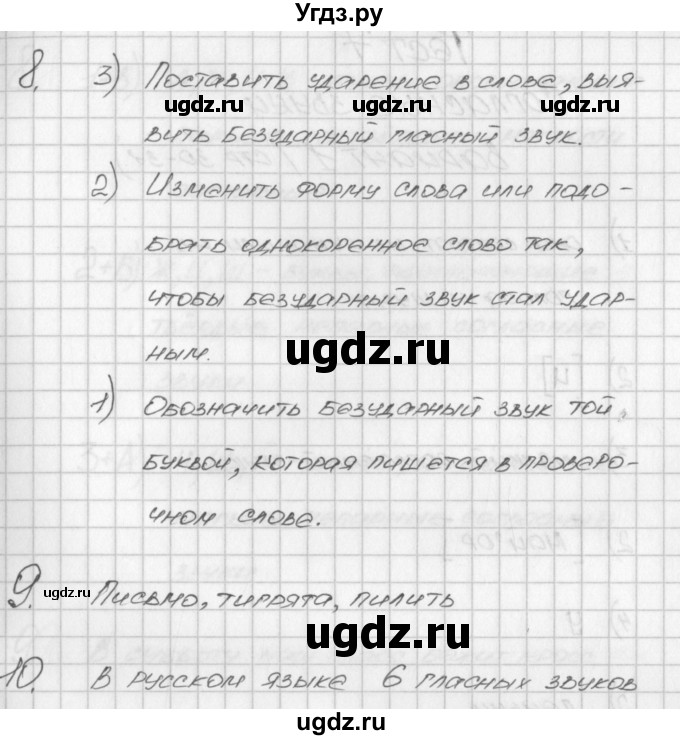 Угдз.ру
8. 3) Поставить ударение в слове, выя-
ugdz.ru ugdz.ru ugdz.ru
вить безударный гласный звук.
2) Изменить форму слова или подо-
брать однокоренное слово так,
чтобы безударный звук стал удар-
ным.
ugdz.ru
1) Обозначить безударный звук той
буквой, которая пишется в провероч-
ном слове.
ugdz.ru ugdz.ru ugdz.ru
9. Письмо, тиррята, пилить
ugdz.ru
ugdz.ru
10. В русском языке 6 гласных звуков
ugdz.ru